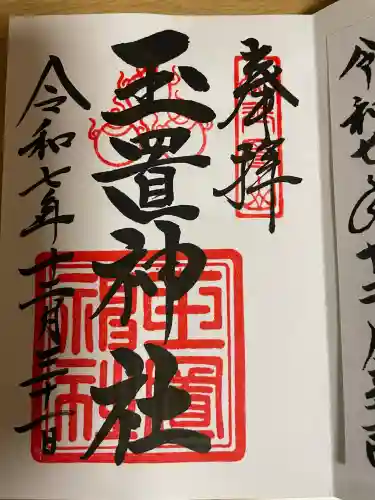 令和七年十二月
奉拝
玉置神社
玉置
神社
令和七年十二月三十一日